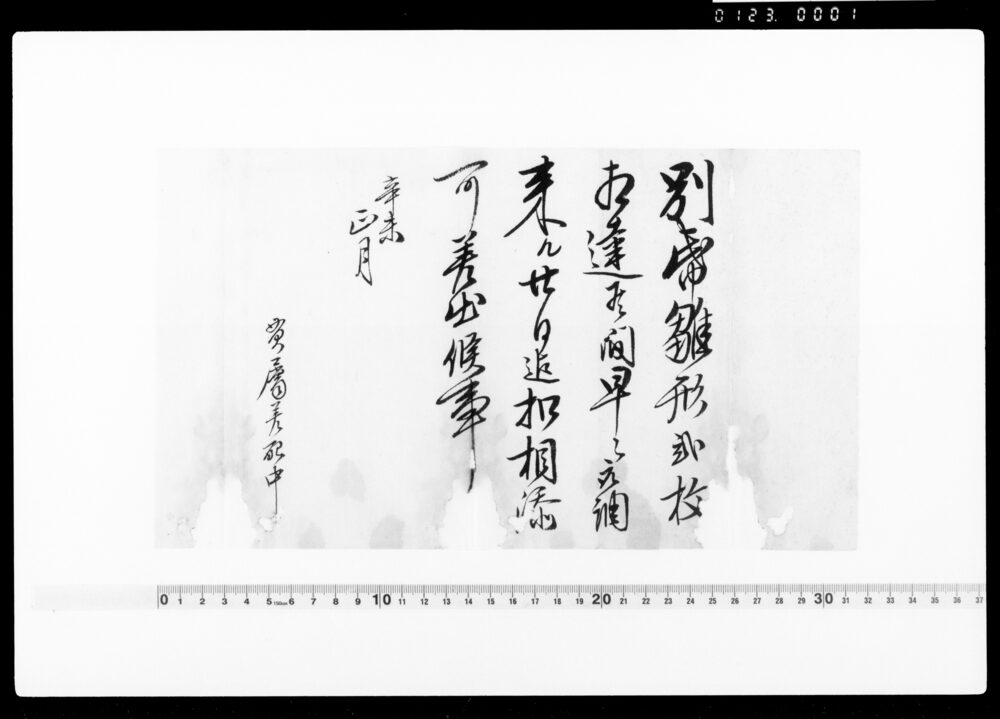 0123. 0001
別帋雛形弐枚
相達候間早々取調
来ル廿日迄扣相添
可差出候事
辛未
正月
貫属差配中
0 1 2 3 4 5 150cm 6 7 8 9 10 11 12 13 14 15 16 17 18 19 20 21 22 23 24 25 26 27 28 29 30 31 32 33 34 35 36 37